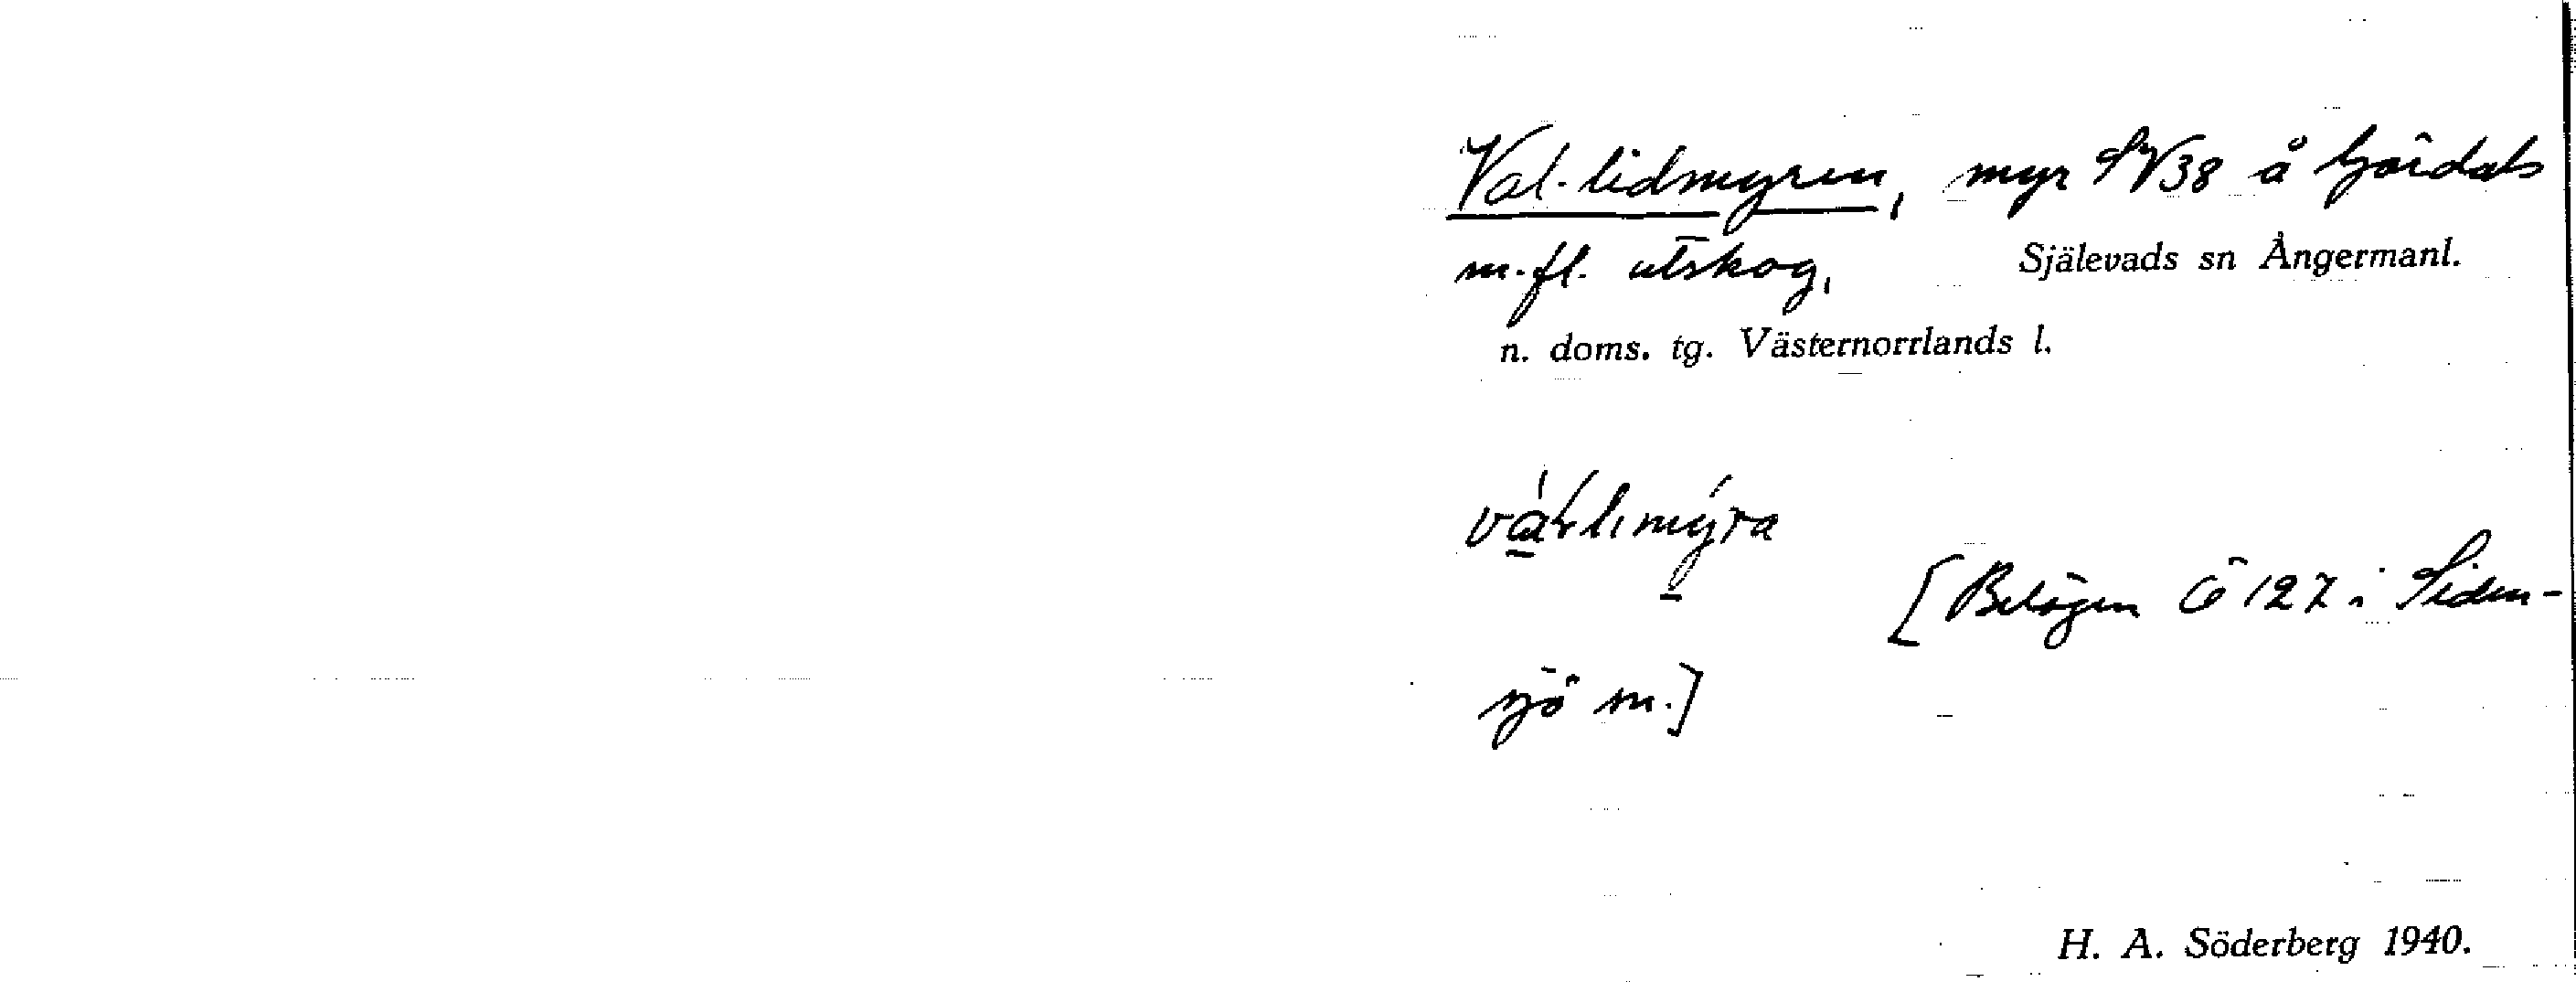 Val-lidmyren, myr SV38 å Gördals
m.fl. utskog, Själevads sn Ångermanl.
n. doms. tg. Västernorrlands l.
[Belägen Ö 127 i Siden-
sjö sn.]
H. A. Söderberg 1940.